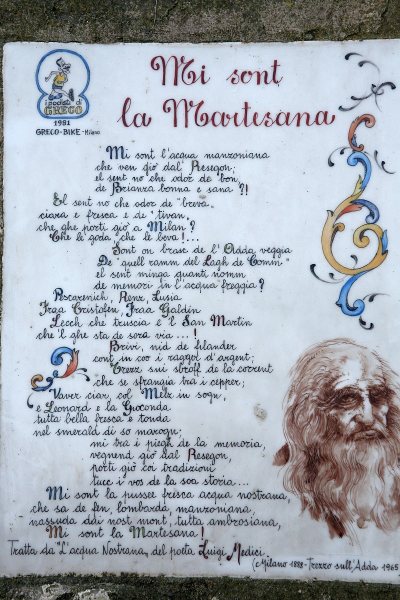 i podisti di
GRECO
1981
GRECO-BIKE-Milano
Mi sont
la Martesana
Mi sont l'acqua manzoniana
che ven giò dal' Resegon;
el sent no che odor de 'bon,
de Brianza bonna e sana ?!
El sent no che odor de "breva,
ciara e fresca e de 'tivan,
che ghe porti giò a Milan?
Che le goda, che le beva!...
Sont on brasc de l'Adda veggia
De "quell ramm del Lagh de Comm"
el sent minga quanti nomm
de memori in l'acqua freggia?
Pescarenich, Renz, Lusia
Fraa Cristofen, Fraa Galdin
Lecch che truscia e 'l San Martin
che 'l ghe sta de sora via...!
Brivi, nid de filander
cont in coo i raggol d'argent;
Trezz sui sbroff de la corrent
che se sfrangia tra i cepper;
Vaver ciar, col Melz in sogn,
e Leonard e la Gioconda
tutta bella fresca e tonda
nel smerald di so marogn;
mi tra i piegh de la memoria,
vegnend giò dal Resegon,
porti giò coi tradizion
tucc i vos de la soa storia...
Mi sont la pussee fresca acqua nostrana,
che sa de fen, lombarda, manzoniana,
nassuda dai nost mont, tutta ambrosiana,
Mi sont la Martesana!
Tratta da "L'acqua Nostrana" del poeta Luigi Medici
(Milano 1888-Trezzo sull'Adda 1965